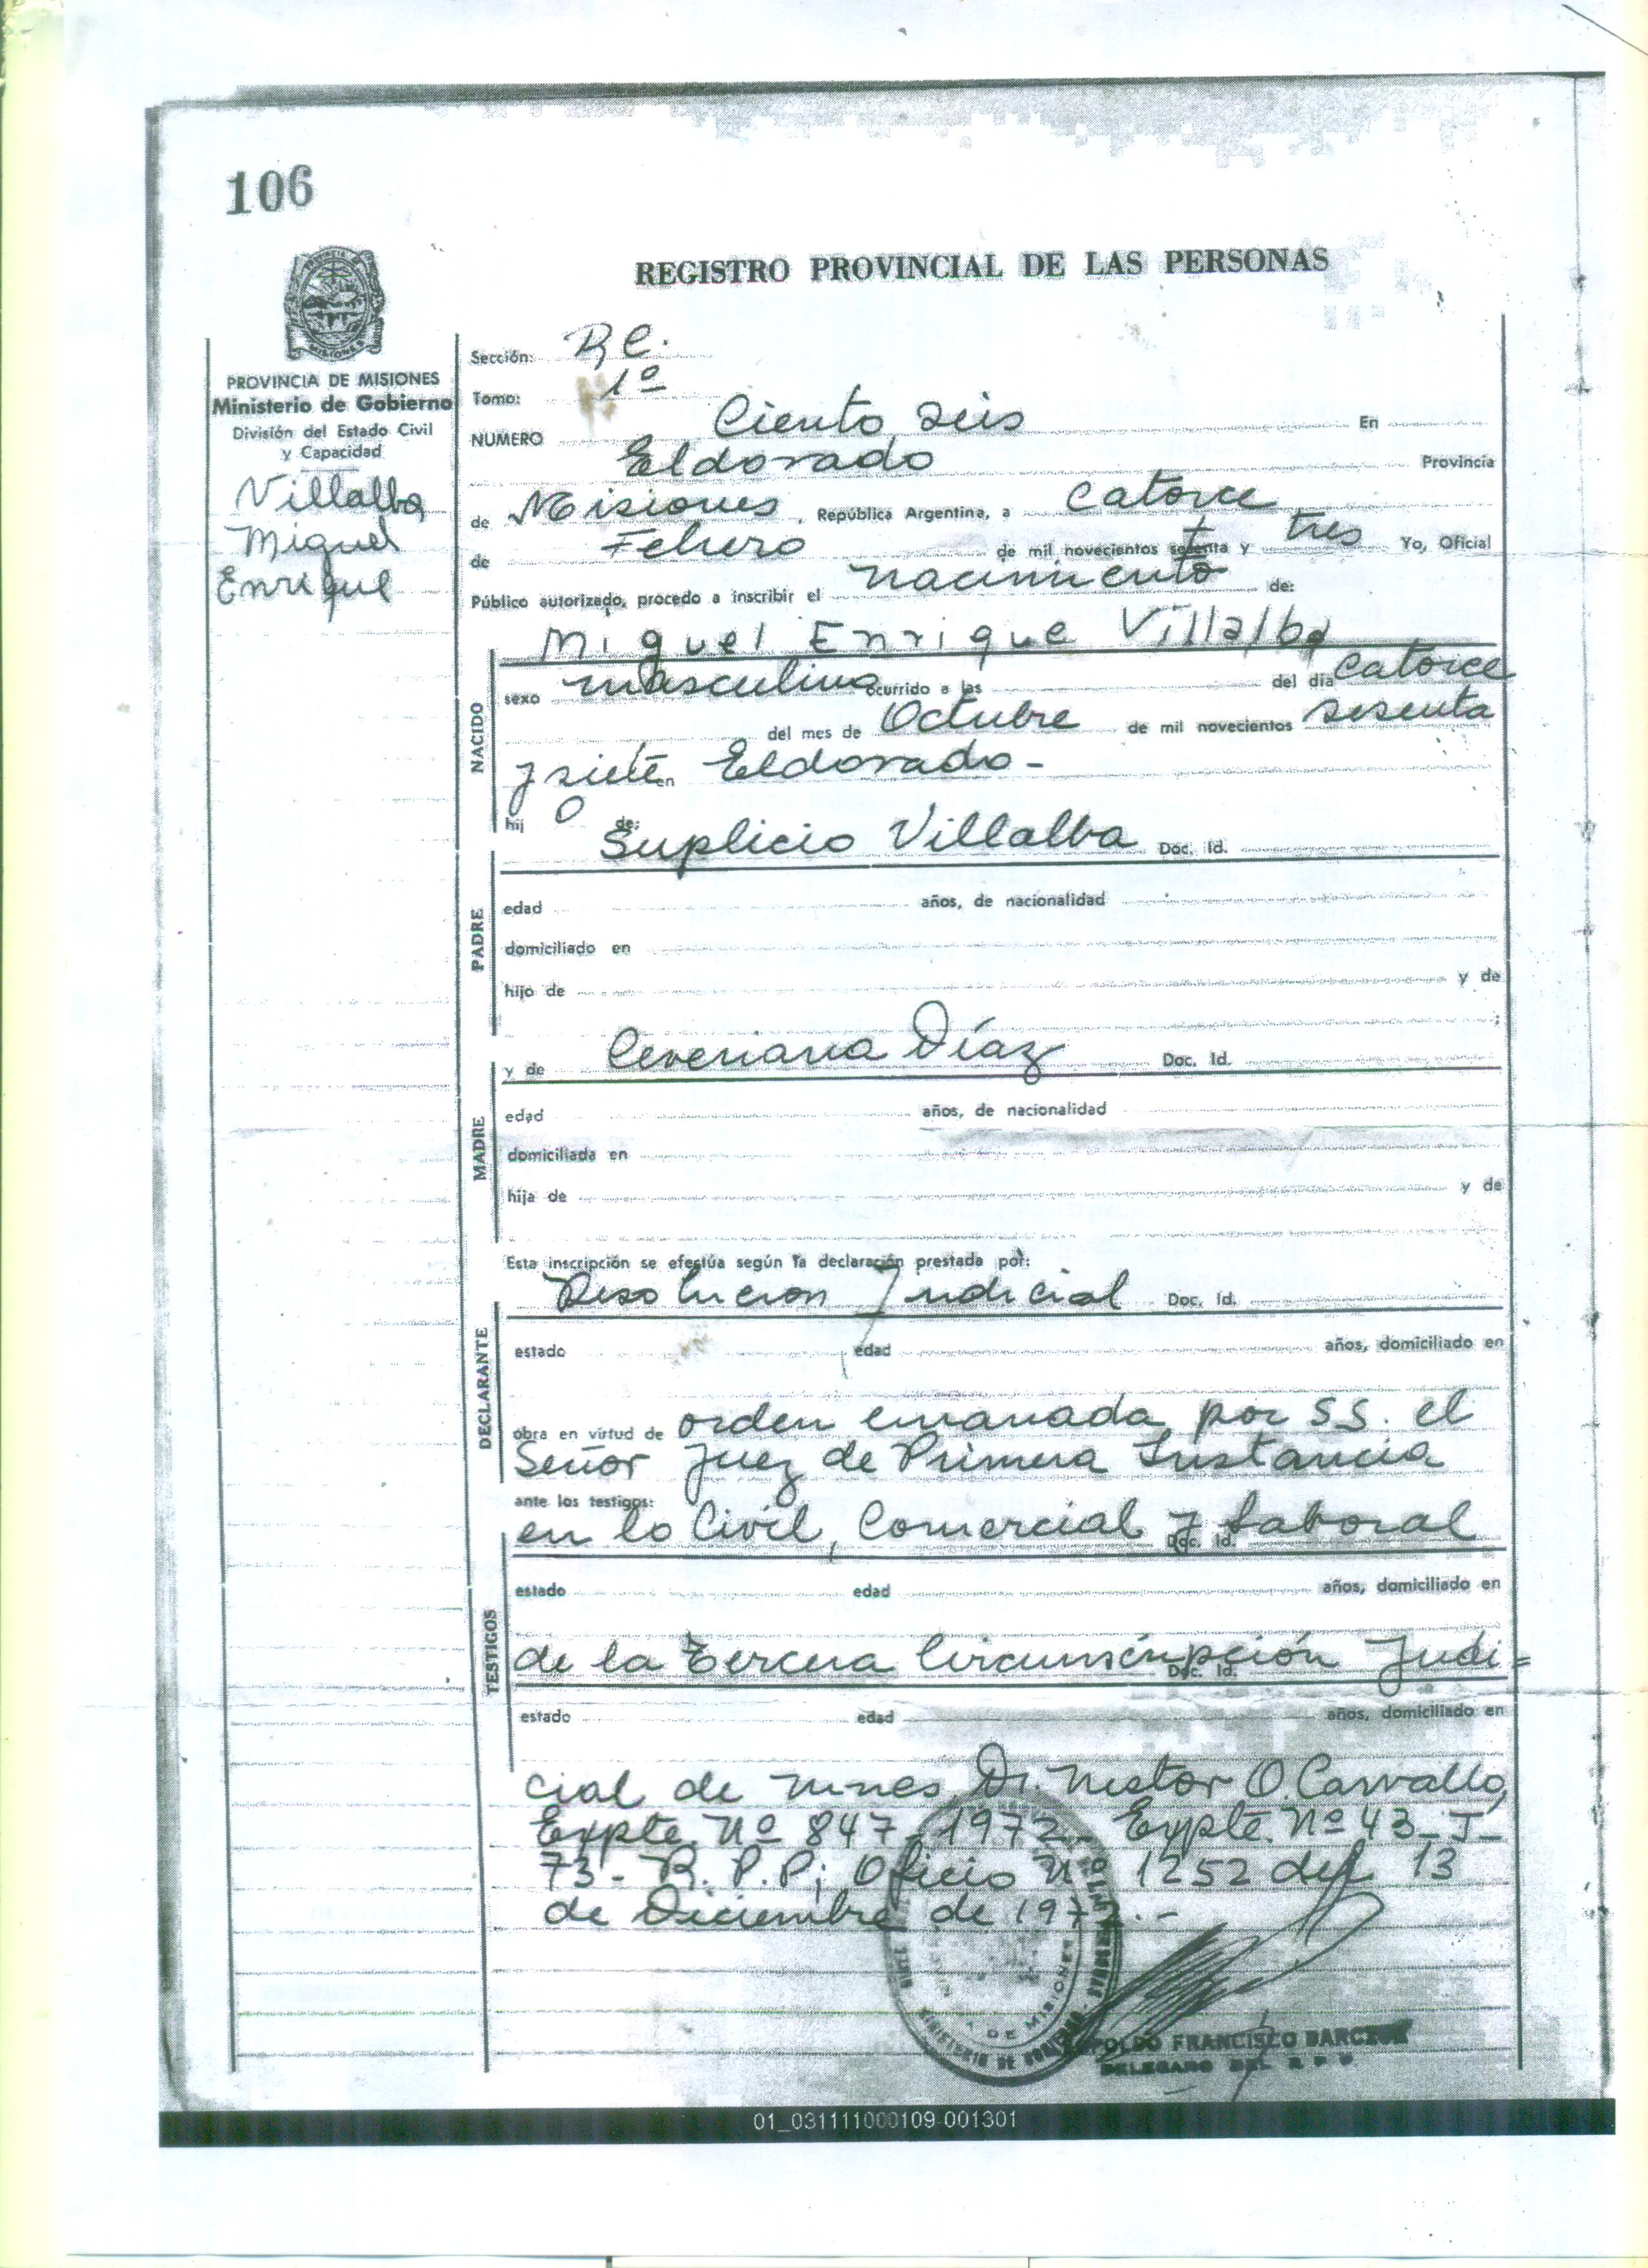 106
REGISTRO PROVINCIAL DE LAS PERSONAS
MISIONES
PROVINCIA DE MISIONES
Ministerio de Gobierno
División del Estado Civil
y Capacidad
Villalba
Miguel
Enrique
Sección: R C.
Tomo: 1º
NUMERO Ciento seis En
Eldorado Provincia
de Misiones, República Argentina, a Catorce
de Febrero de mil novecientos setenta y tres Yo, Oficial
Público autorizado, procedo a inscribir el nacimiento de:
Miguel Enrique Villalba
NACIDO
sexo masculino ocurrido a las del día Catorce
del mes de Octubre de mil novecientos sesenta
y siete en Eldorado-
hij o de:
Suplicio Villalba Doc. Id.
PADRE
edad años, de nacionalidad
domiciliado en
hijo de y de
;
y de Ceveriana Díaz Doc. Id.
MADRE
edad años, de nacionalidad
domiciliada en
hija de y de
Esta inscripción se efectúa según la declaración prestada por:
Resolucion Judicial Doc. Id.
DECLARANTE
estado edad años, domiciliado en
obra en virtud de orden emanada por SS. el
Señor Juez de Primera Instancia
ante los testigos:
en lo Civil, Comercial y Laboral
Doc. Id.
TESTIGOS
estado edad años, domiciliado en
de la Tercera Circunscripción Judi=
Doc. Id.
estado edad años, domiciliado en
cial de mnes, Dr. Nestor O. Carvallo,
Expte. Nº 847-1972- Expte. Nº 43-J-
73- R. P. P; Oficio Nº 1252 del 13
de Diciembre de 197 .-
MINISTERIO DE
DE MISIONES
FRANCISCO
DELEGADO DEL R P P
01_031111000109-001301